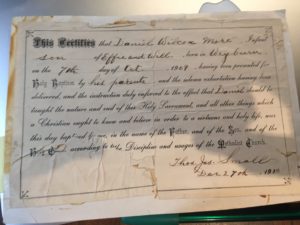 This Certifies that Daniel Wilcox More Infant
Son of Effie and Will, born in Weyburn
on the 7th day of Oct 1909, having been presented for
Holy Baptism by his parents and the solemn exhortation having been
delivered, and the instruction duly referred to the effect that Daniel should be
taught the nature and end of this Holy Sacrament, and all other things which
a Christian ought to know and believe in order to a virtuous and holy life, was
this day baptized by me, in the name of the Father, and of the Son, and of the
Holy according to the Discipline and usages of the Methodist Church.
Thos. Jas. Small
Dec 27th